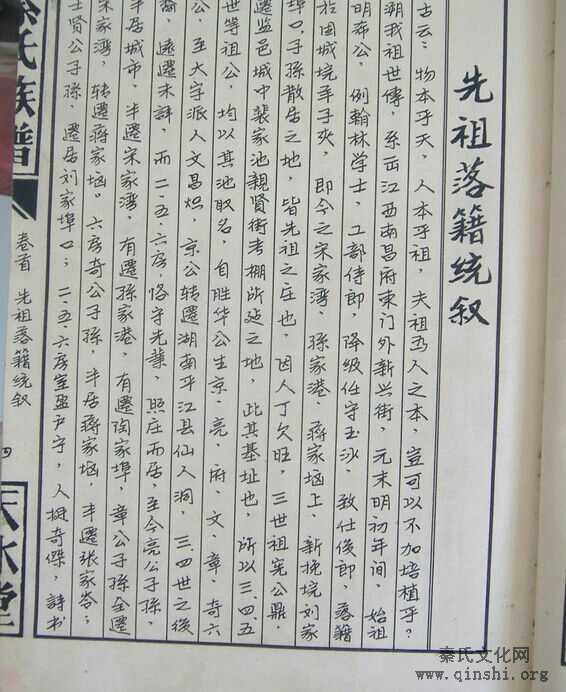 先祖落籍统叙
古云：物本乎天，人本乎祖，夫祖为人之本，岂可以不加培植乎？
溯我祖世傳，系出江西南昌府東门外新兴街，元末明初年间，始祖
明公，例翰林学士，工部侍郎，降级任守玉沙，致仕後即，落籍
於固城垸车子夾，即今之宋家湾、孫家港、蔣家垴上，新挽垸刘家
埠口，子孫散居之地，皆先祖之庄也，因人丁欠旺，三世祖宪公鼎，
遷监邑城中裴家池親賢街考棚所延之地，此其基址也，所以三、四、五
世等祖公，均以其池取名，自胜华公生京、亮、府、文、章、奇六
公，至大字派人文昌炽，京公转遷湖南平江县仙人洞，三、四世之後
裔，遠遷未詳，而二、五、六房，恪守先業，照庄而居，至今亮公子孫，
半居城市，半遷宋家湾，有遷孫家港，有遷陶家埠，章公子孫全遷
宋家湾，转遷蔣家垴。六房奇公子孫，半居蔣家垴，半遷张家；
士賢公子孫，遷居刘家埠口；二、五、六房室盈户宁，人挺奇傑，詩书
秦氏族譜
卷首 先祖落籍统叙
四
天水堂
秦氏文化网
www.qinshi.org